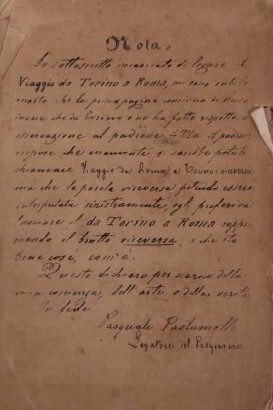 Nota.
Io sottoscritto incaricato di legare il
Viaggio da Torino a Roma, mi sono subito
mosto che la prima pagina comincia da Roma
invece che da Torino e ne ho fatto rispettosa
osservazione al padrone. — Ma il padrone
rispose che veramente si sarebbe potuto
chiamare Viaggio da Roma a Torino
ma che la parola viceversa potendo essere
interpretata sinistramente, egli preferiva
lasciare il da Torino a Roma soppri-
mendo il brutto viceversa, e che sta
bene così, com'è.
Questo dichiaro per scarico della
mia coscienza, dell'arte e della verità
In fede
Pasquale Pastamolle
Legatore del Pasquino